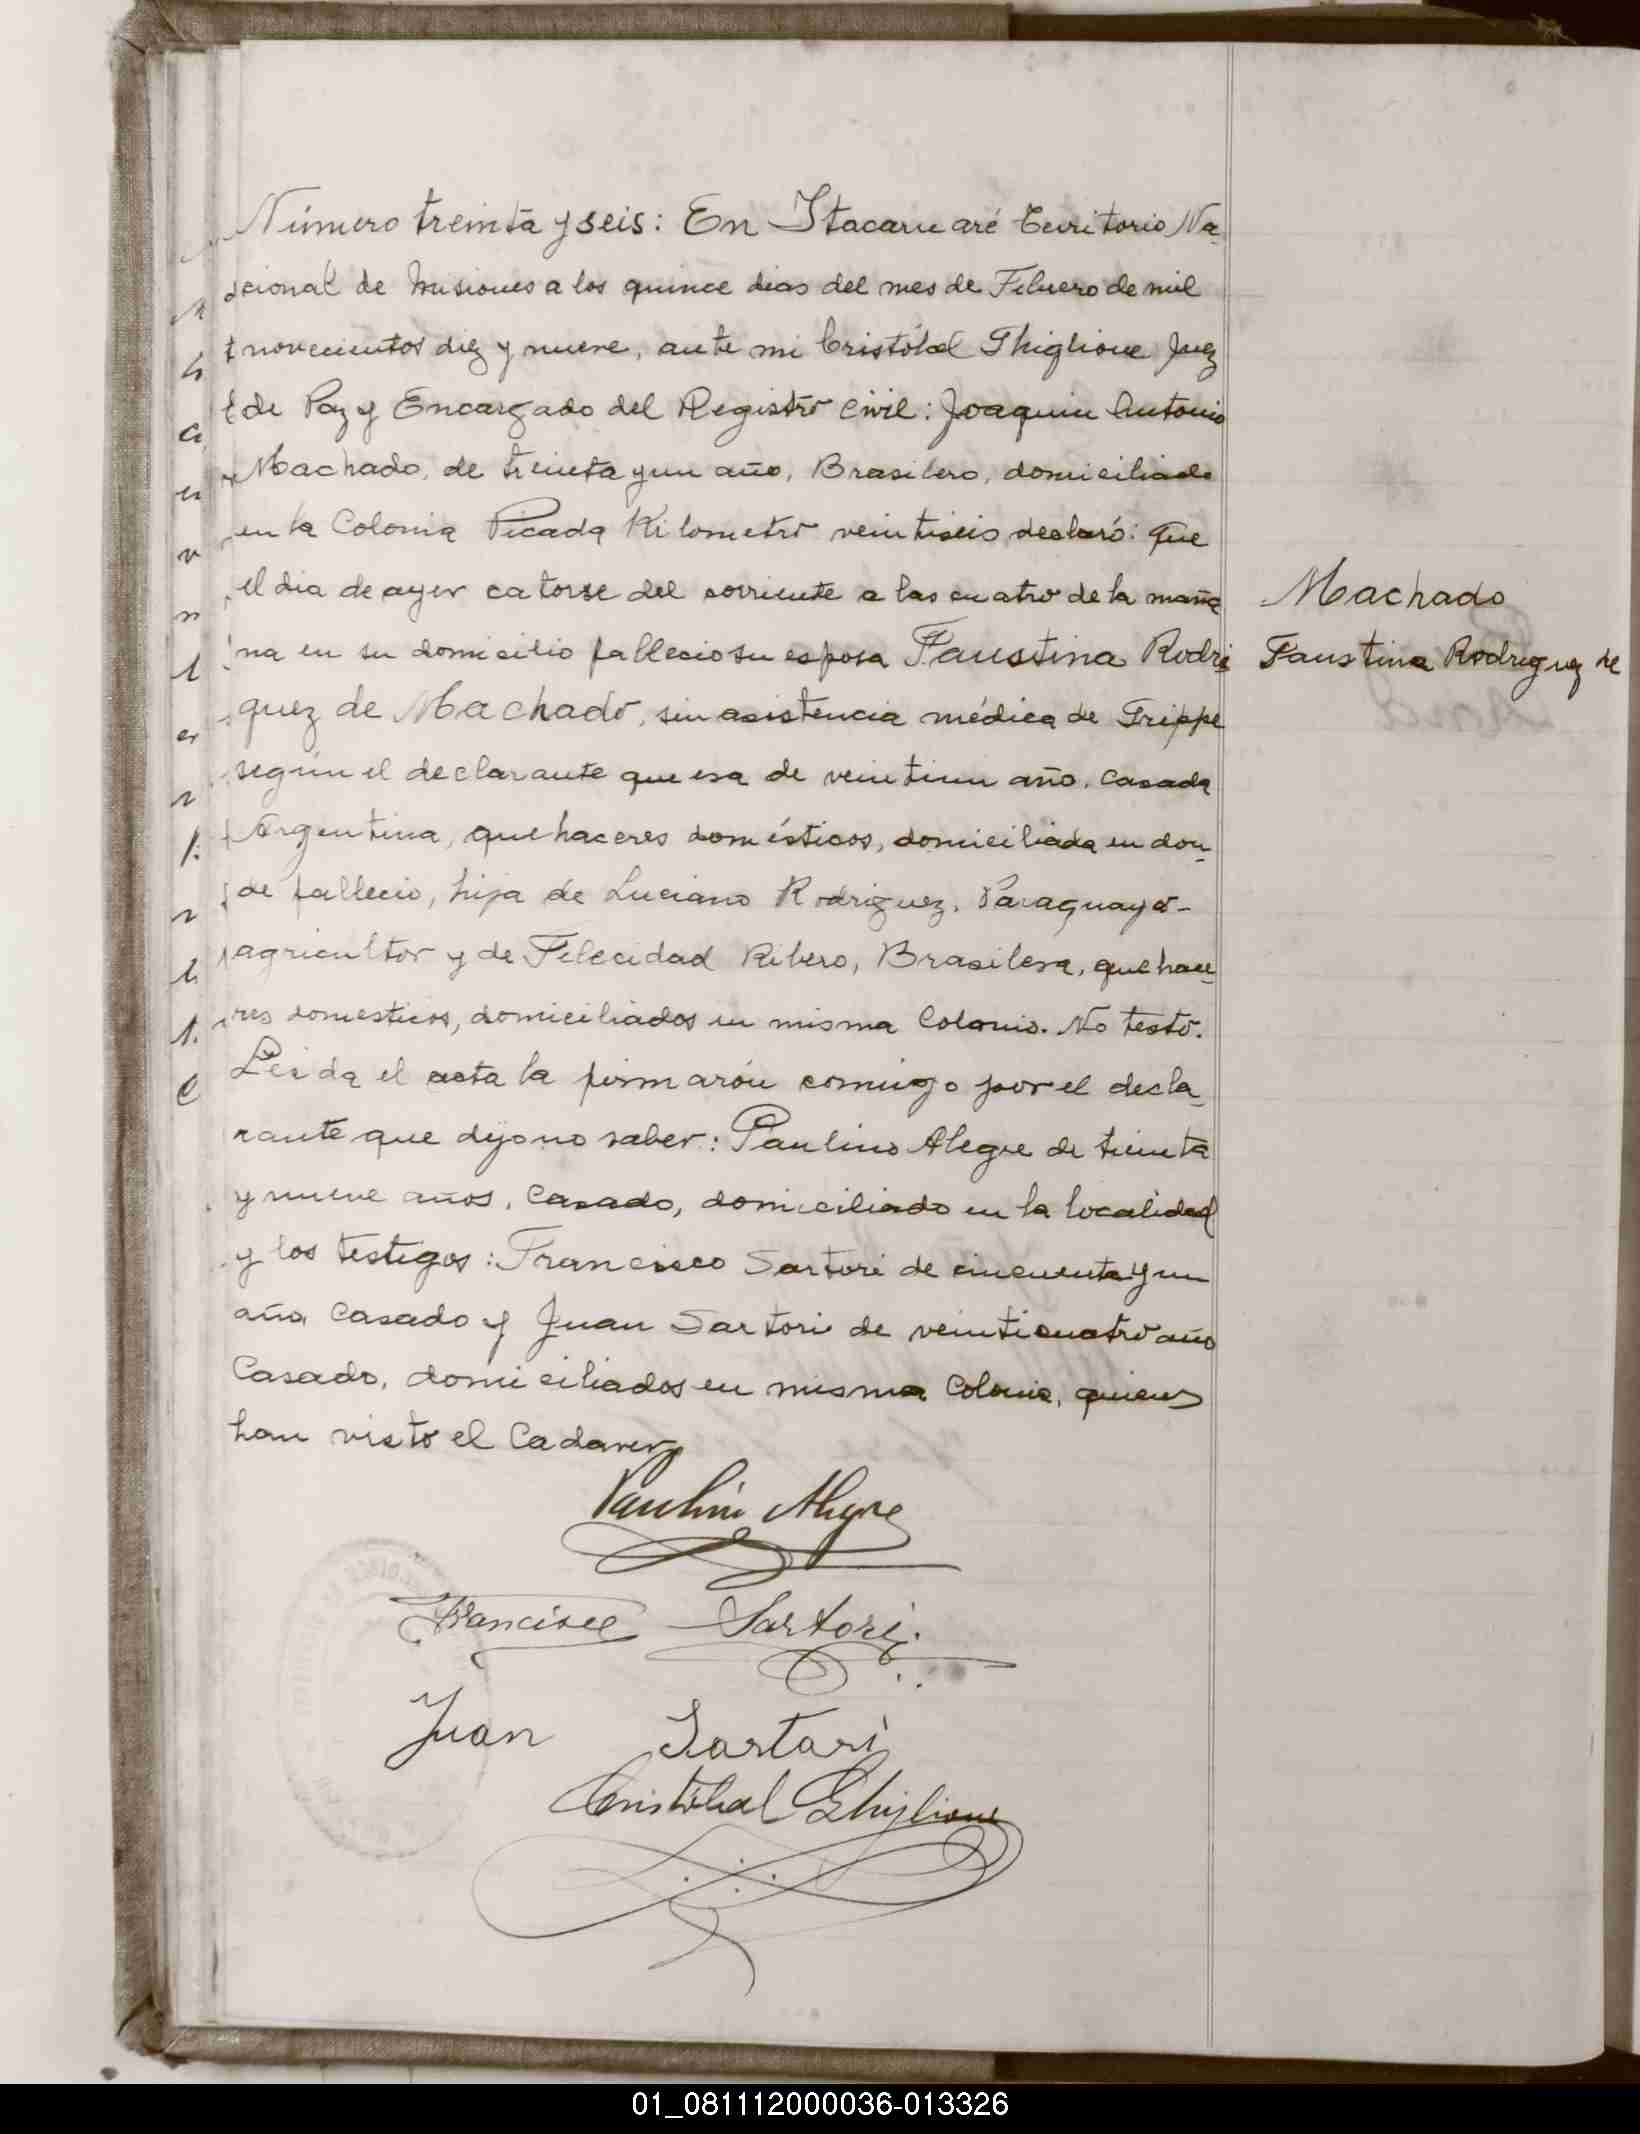 Número treinta y seis: En Itacaruaré Territorio Na-
cional de Misiones a los quince dias del mes de Febrero de mil
novecientos diez y nueve, ante mi Cristóbal Ghiglione Juez
de Paz y Encargado del Registro Civil: Joaquin Antonio
Machado, de treinta y un año, Brasilero, domiciliado
en la Colonia Picada Kilometro veintiseis declaró: que
el dia de ayer catorse del corriente a las cuatro de la maña
na en su domicilio fallecio su esposa Faustina Rodri
guez de Machado, sin asistencia médica de Grippe
según el declarante que era de veintiun año, casada
Argentina, quehaceres domésticos, domiciliada en don-
de fallecio, hija de Luciano Rodriguez, Paraguayo-
agricultor y de Felecidad Ribero, Brasilera, quehace-
res domesticos, domiciliados en misma Colonia. No testó.
Leida el acta la firmarón comigo por el decla-
rante que dijo no saber: Paulino Alegre de treinta
y nueve años, Casado, domiciliado en la localidad
y los testigos: Francisco Sartori de cincuenta y un
año, Casado y Juan Sartori de veinticuatro año
Casado, domiciliados en misma Colonia, quienes
han visto el Cadaver
Machado
Faustina Rodriguez de
Paulino Alegre
Francisco Sartori
Juan Sartori
Cristóbal Ghiglione
01_081112000036-013326